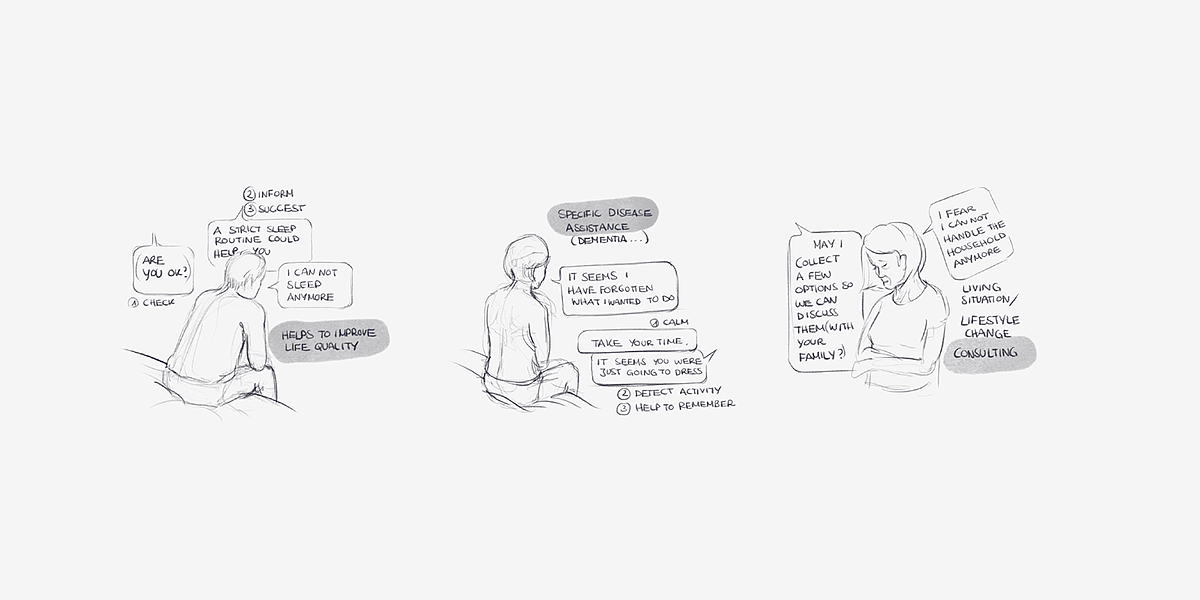 ② INFORM
③ SUGGEST
A STRICT SLEEP
ROUTINE COULD
HELP YOU
ARE
YOU OK?
① CHECK
I CAN NOT
SLEEP
ANYMORE
HELPS TO IMPROVE
LIFE QUALITY
SPECIFIC DISEASE
ASSISTANCE
(DEMENTIA...)
IT SEEMS I
HAVE FORGOTTEN
WHAT I WANTED TO DO
① CALM
TAKE YOUR TIME.
IT SEEMS YOU WERE
JUST GOING TO DRESS
② DETECT ACTIVITY
③ HELP TO REMEMBER
I FEAR
I CAN NOT
HANDLE THE
HOUSEHOLD
ANYMORE
MAY I
COLLECT
A FEW
OPTIONS SO
WE CAN
DISCUSS
THEM (WITH
YOUR
FAMILY?)
LIVING
SITUATION/
LIFESTYLE
CHANGE
CONSULTING